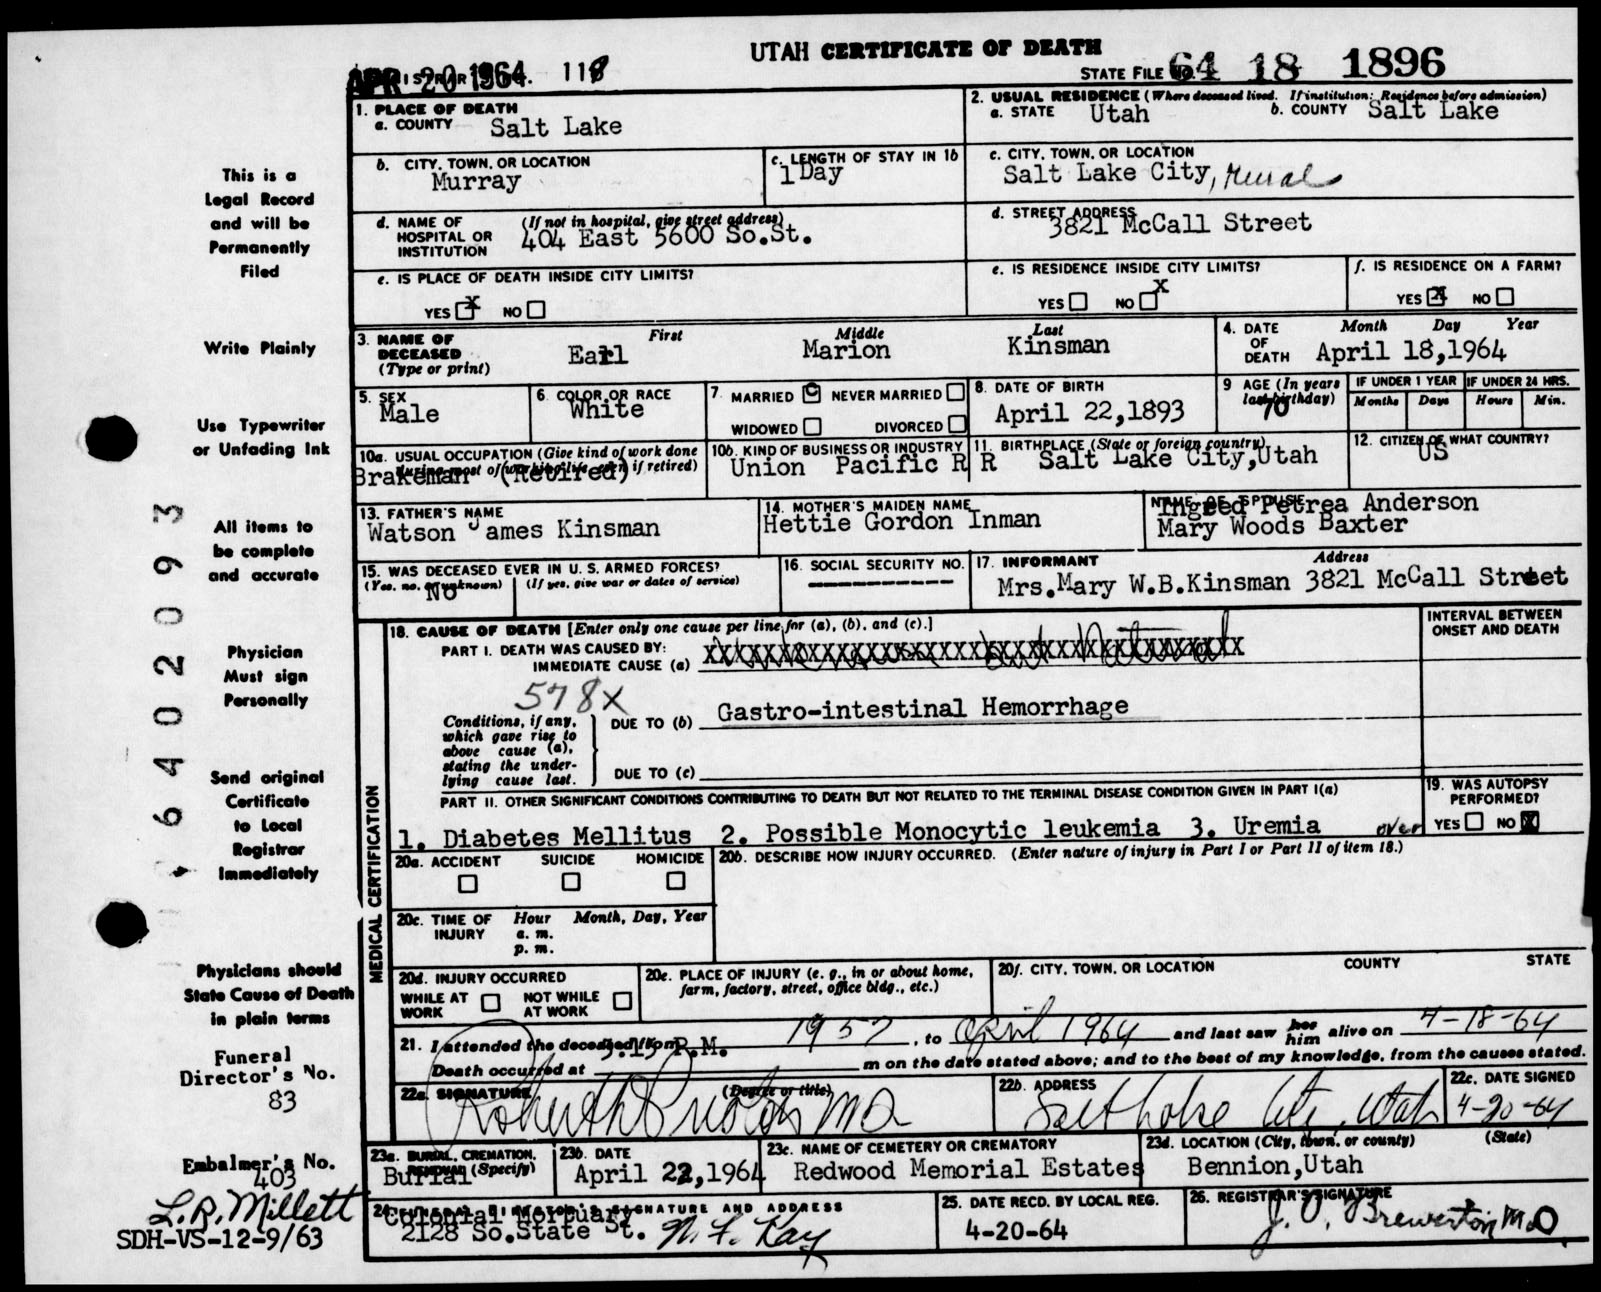 UTAH CERTIFICATE OF DEATH
APR 20 1964 118
STATE FILE NO. 64 18 1896
1. PLACE OF DEATH
a. COUNTY Salt Lake
2. USUAL RESIDENCE (Where deceased lived. If institution: Residence before admission)
a. STATE Utah b. COUNTY Salt Lake
b. CITY, TOWN, OR LOCATION
Murray
c. LENGTH OF STAY IN 1b
1 Day
c. CITY, TOWN, OR LOCATION
Salt Lake City, Rural
d. NAME OF HOSPITAL OR INSTITUTION
(If not in hospital, give street address)
404 East 5600 So.St.
d. STREET ADDRESS
3821 McCall Street
e. IS PLACE OF DEATH INSIDE CITY LIMITS?
YES x NO
e. IS RESIDENCE INSIDE CITY LIMITS?
YES NO x
f. IS RESIDENCE ON A FARM?
YES x NO
3. NAME OF DECEASED
(Type or print)
First Middle Last
Earl Marion Kinsman
4. DATE OF DEATH
Month Day Year
April 18,1964
5. SEX
Male
6. COLOR OR RACE
White
7. MARRIED NEVER MARRIED
WIDOWED DIVORCED
8. DATE OF BIRTH
April 22,1893
9 AGE (In years last birthday)
70
IF UNDER 1 YEAR IF UNDER 24 HRS.
Months Days Hours Min.
10a. USUAL OCCUPATION (Give kind of work done during most of working life, even if retired)
Brakeman (Retired)
10b. KIND OF BUSINESS OR INDUSTRY
Union Pacific R R
11. BIRTHPLACE (State or foreign country)
Salt Lake City,Utah
12. CITIZEN OF WHAT COUNTRY?
US
13. FATHER'S NAME
Watson James Kinsman
14. MOTHER'S MAIDEN NAME
Hettie Gordon Inman
NAME OF SPOUSE
Ingred Petrea Anderson
Mary Woods Baxter
15. WAS DECEASED EVER IN U. S. ARMED FORCES?
(Yes, no, or unknown) (If yes, give war or dates of service)
No
16. SOCIAL SECURITY NO.
17. INFORMANT Address
Mrs.Mary W.B.Kinsman 3821 McCall Street
MEDICAL CERTIFICATION
18. CAUSE OF DEATH [Enter only one cause per line for (a), (b), and (c).]
INTERVAL BETWEEN
ONSET AND DEATH
PART I. DEATH WAS CAUSED BY:
IMMEDIATE CAUSE (a)
578X
Conditions, if any,
which gave rise to
above cause (a),
stating the under-
lying cause last.
DUE TO (b) Gastro-intestinal Hemorrhage
DUE TO (c)
PART II. OTHER SIGNIFICANT CONDITIONS CONTRIBUTING TO DEATH BUT NOT RELATED TO THE TERMINAL DISEASE CONDITION GIVEN IN PART I(a)
1. Diabetes Mellitus 2. Possible Monocytic leukemia 3. Uremia over
19. WAS AUTOPSY
PERFORMED?
YES NO X
20a. ACCIDENT SUICIDE HOMICIDE
20b. DESCRIBE HOW INJURY OCCURRED. (Enter nature of injury in Part I or Part II of item 18.)
20c. TIME OF INJURY
Hour Month, Day, Year
a. m.
p. m.
20d. INJURY OCCURRED
WHILE AT WORK NOT WHILE AT WORK
20e. PLACE OF INJURY (e. g., in or about home,
farm, factory, street, office bldg., etc.)
20f. CITY, TOWN, OR LOCATION COUNTY STATE
21. I attended the deceased from 1957, to April 1964 and last saw her him alive on 4-18-64
Death occurred at P.M. m on the date stated above; and to the best of my knowledge, from the causes stated.
22a. SIGNATURE (Degree or title)
MD
22b. ADDRESS
Salt Lake City, Utah
22c. DATE SIGNED
4-20-64
23a. BURIAL, CREMATION, REMOVAL (Specify)
Burial
23b. DATE
April 22,1964
23c. NAME OF CEMETERY OR CREMATORY
Redwood Memorial Estates
23d. LOCATION (City, town, or county) (State)
Bennion,Utah
24. FUNERAL DIRECTOR'S SIGNATURE AND ADDRESS
Colonial Mortuary
2128 So.State St. N. F. Kay
25. DATE RECD. BY LOCAL REG.
4-20-64
26. REGISTRAR'S SIGNATURE
J. O. Brewerton M.D.
This is a
Legal Record
and will be
Permanently
Filed
Write Plainly
Use Typewriter
or Unfading Ink
All items to
be complete
and accurate
Physician
Must sign
Personally
Send original
Certificate
to Local
Registrar
Immediately
Physicians should
State Cause of Death
in plain terms
Funeral
Director's No.
83
Embalmer's No.
403
L.R. Millett
SDH-VS-12-9/63
6402093